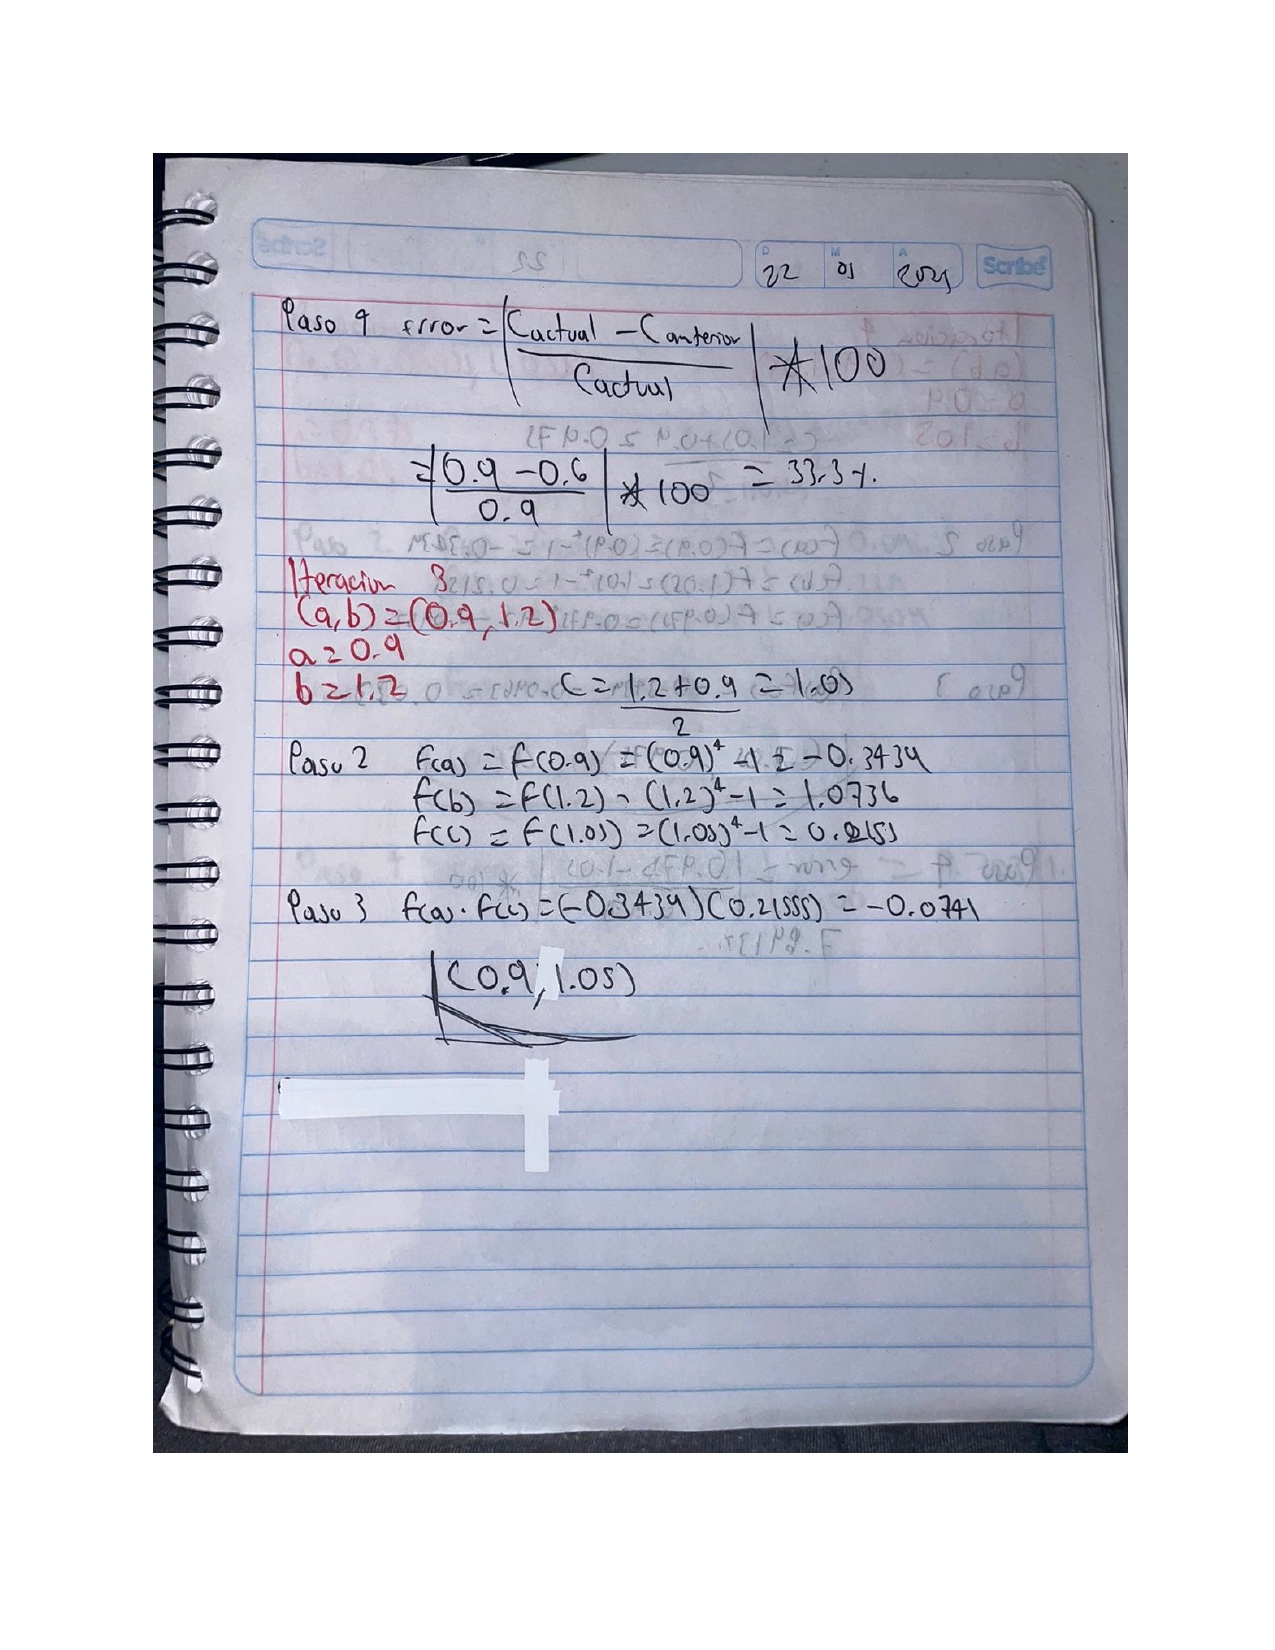 D M A
22 01 2021 Scribe
Paso 4 error = | Cactual - Canterior / Cactual | * 100
= | 0.9 - 0.6 / 0.9 | * 100 = 33.3%.
Iteracion 3
(a,b) = (0.9, 1.2)
a = 0.9
b = 1.2 C = 1.2+0.9 / 2 = 1.05
Paso 2 f(a) = f(0.9) = (0.9)⁴ -1 = -0.3439
f(b) = f(1.2) = (1.2)⁴ -1 = 1.0736
f(c) = f(1.05) = (1.05)⁴ -1 = 0.2155
Paso 3 f(a) · f(c) = (-0.3439)(0.21555) = -0.0741
(0.9, 1.05)